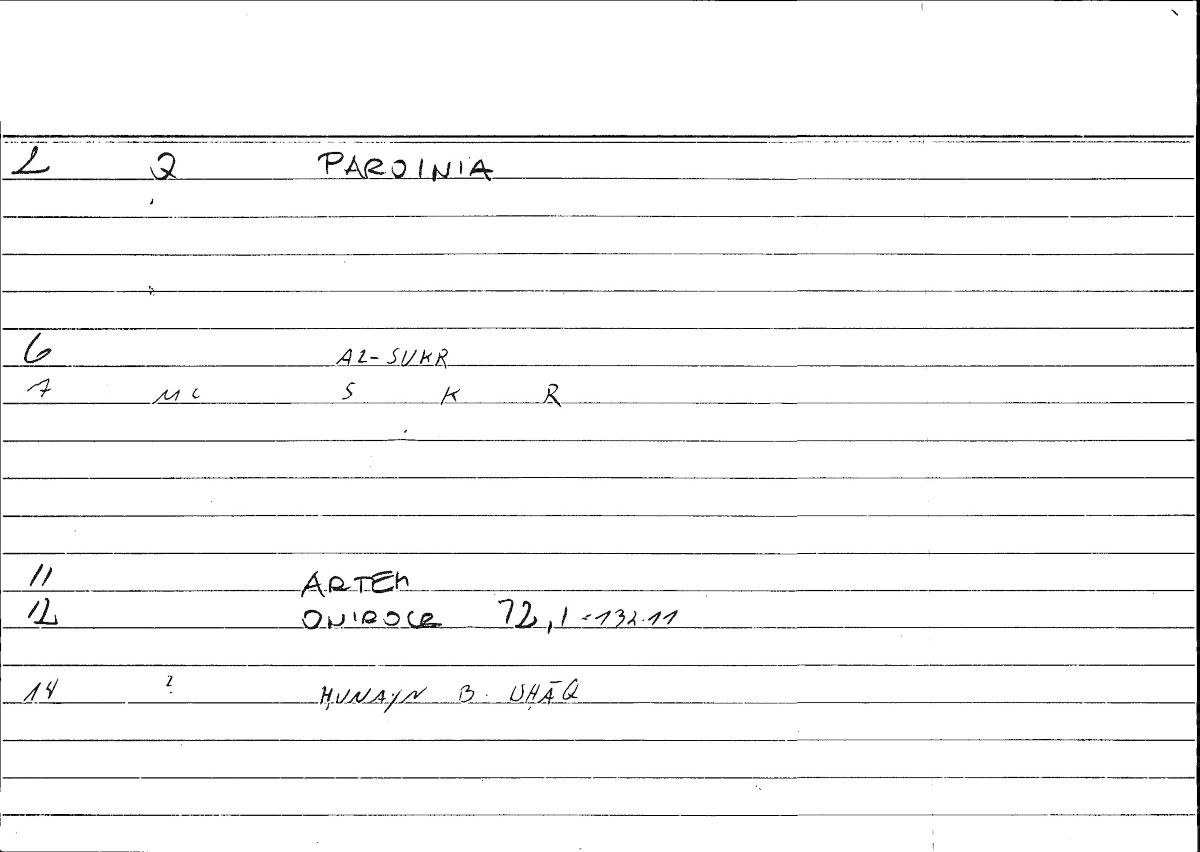 2 Q PAROINIA
6 AL-SUKR
7 MC S K R
11 ARTEM
12 ONIROCR 72,1 = 132.11
14 ? ḤUNAYN B. ISḤĀQ